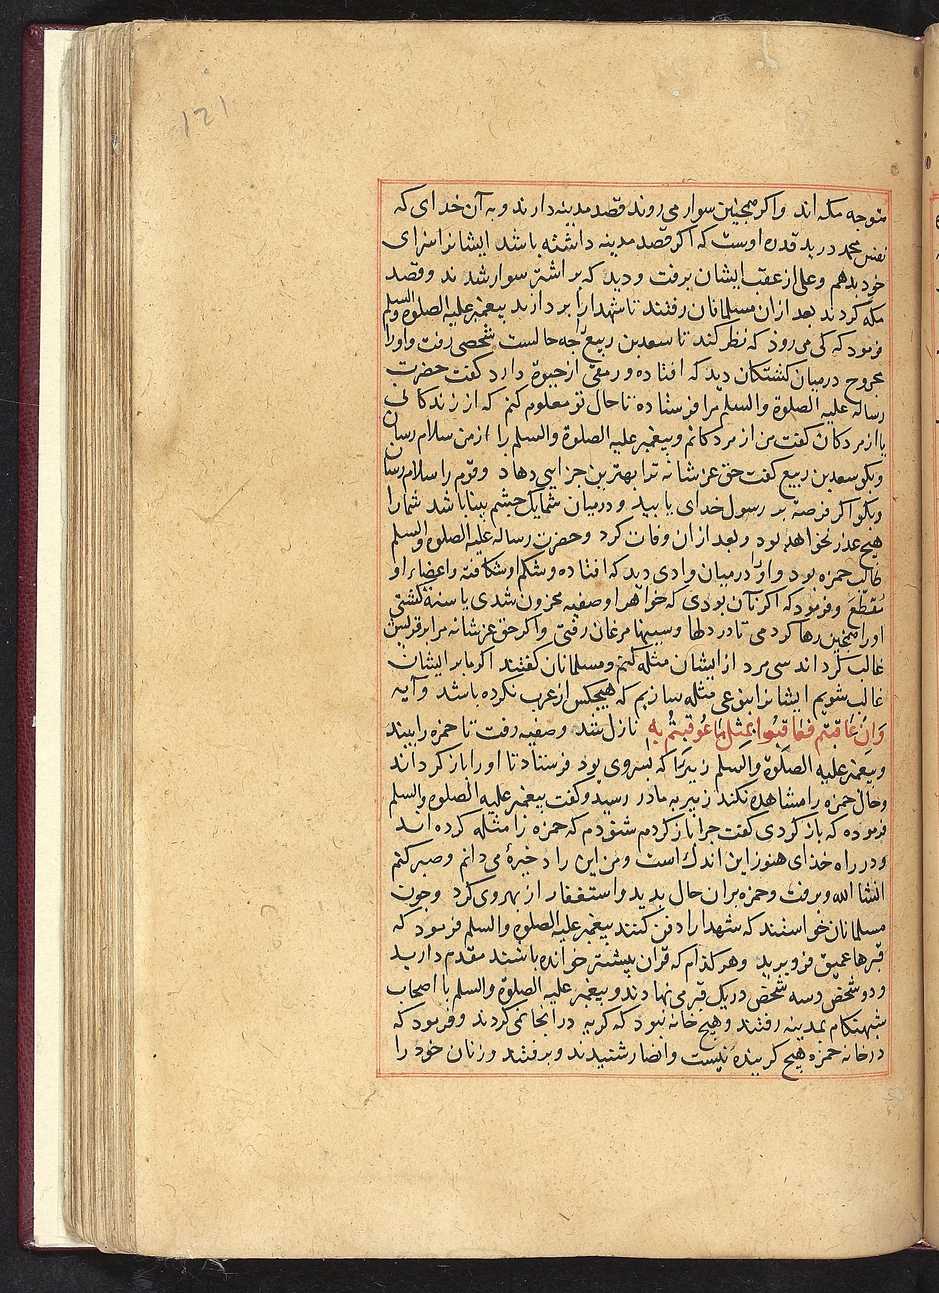 121
متوجه مکه اند واکر همچنین سوار می روند قصد مدینه دارند و به آن خدای که
نفس محمد در ید قدرة اوست که اکر قصد مدینه داشته باشد ایشانرا سزای
خود بدهم وعلی از عقب ایشان برفت و دید که بر اشتر سوار شدند و قصد
مکه کردند بعد ازان مسلمانان رفتند تا شهدا را بردارند پیغمبر علیه الصلوة والسلم
فرمود که کی می رود که نظر کند تا سعد بن ربیع را چه حالست شخصی رفت واورا
مجروح درمیان کشتکان دید که افتاده و رمقی از حیوة دارد کفت حضرت
رسالة علیه الصلوة والسلم مرا فرستاده تا حال تو معلوم کنم که از زندکانی
یا از مردکان کفت من از مردکانم وپیغمبر علیه الصلوة والسلم را از من سلام رسان
وبکو سعد بن ربیع کفت حق عز شانه ترا بهترین جزایی دهاد وقوم را سلام رسان
وبکو اکر فرصة بر رسول خدای یابید و درمیان شما یک چشم بینا باشد شما را
هیچ عذر نخواهد بود وبعد ازان وفات کرد وحضرت رسالة علیه الصلوة والسلم
طالب حمزه بود و اورا درمیان وادی دید که افتاده و شکم او شکافته واعضاء او
مقطع وفرمود که اکر نه آن بودی که خواهر او صفیه محزون شدی یا سنة کشتی
اورا همچنین رها کردمی تا در دلها وسینها مرغان رفتی واکر حق عز شانه مرا بر قریش
غالب کرداند سی مرد از ایشان مثله کنم ومسلمانان کفتند اکر ما بر ایشان
غالب شویم ایشانرا بنوعی مثله سازیم که هیچکس از عرب نکرده باشد وآیه
وَاِنْ عَاقَبْتُم فَعَاقِبُوا بمثل مَا عُوقِبْتُم بِه نازل شد وصفیه رفت تا حمزه را بیند
وپیغمبر علیه الصلوة والسلم زبیر را که پسر وی بود فرستاد تا او را باز کرداند
وحال حمزه را مشاهده نکند زبیر به مادر رسید وکفت پیغمبر علیه الصلوة والسلم
فرموده که باز کردی کفت چرا باز کردم شنودم که حمزه را مثله کرده اند
ودر راه خدای هنوز این اندک است ومن این را ذخیرهٔ می دانم وصبر کنم
انشا الله وبرفت وحمزه بران حال بدید واستغفار از بهر وی کرد وچون
مسلمانان خواستند که شهدا را دفن کنند پیغمبر علیه الصلوة والسلم فرمود که
قبرها عمیق فرو برید وهر کدام که قران بیشتر خوانده باشند مقدم دارید
و دو شخص وسه شخص در یک قبر می نهادند وپیغمبر علیه الصلوة والسلم با اصحاب
شبهنکام بمدینه رفتند وهیچ خانه نبود که کریه درانجا نمی کردند وفرمود که
در خانه حمزه هیچ کرینده نیست وانصار شنیدند وبرفتند وزنان خود را